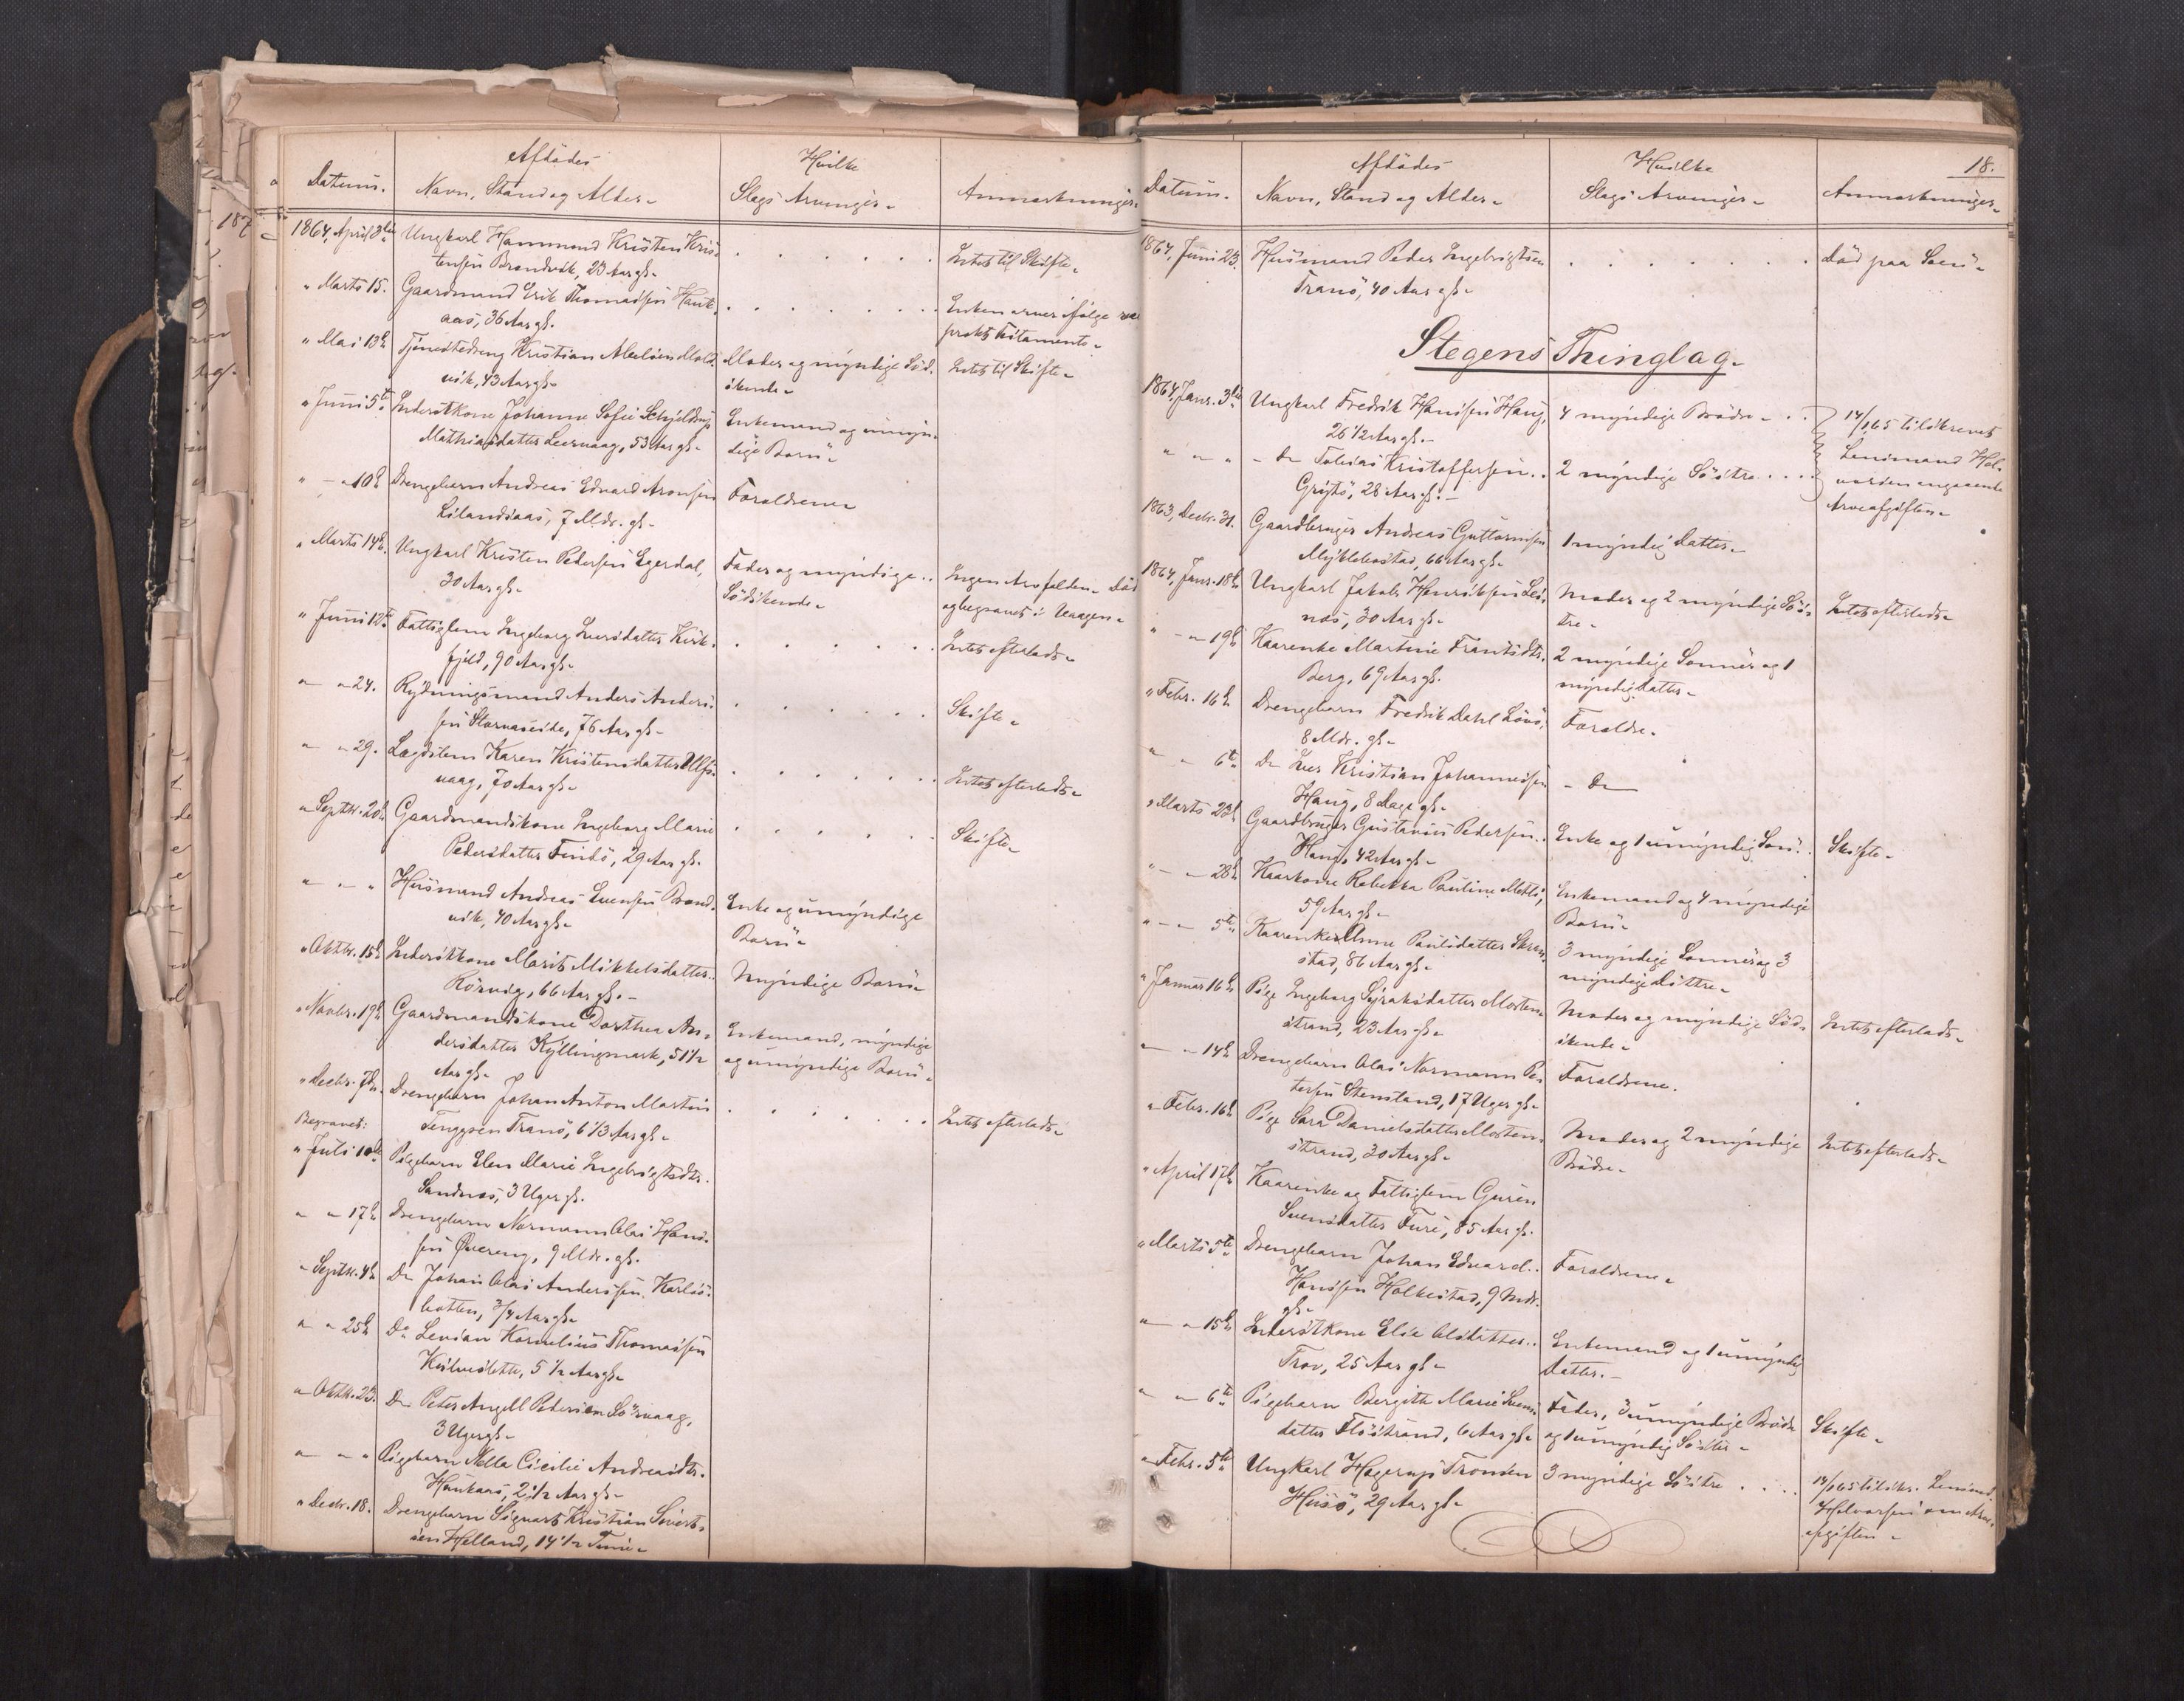 Afdødes
Hvilke
Datum.
Navn, Stand og Alder.
Slags Arvinger.
Anmærkninger.
1864, April 3die
Ungkarl Hammond Kristen Kris-
tensen Brandvik, 23 Aar gl.
Intet til Skifte.
" Marts 15.
Gaardmand Erik Thomassen Hauk-
aas, 36 Aar gl.
Enken arver ifølge
Testamente.
" Mai 13de
Tjenestedreng Kristian
vik, 43 Aar gl.
Moder og myndige Sød-
skende.
Intet til Skifte.
" Juni 5te
Inderstkone Johanne Sofie Schjeldrup
Mathiasdatter Leervaag, 53 Aar gl.
Enkemand og umyn-
dige Børn.
" — " 10de
Drengebarn Andreas Edvard Aronsen
Lilandsaas, 7 Mdr. gl.
Forældrene
" Marts 14de
Ungkarl Kristen Pedersen Egerdal,
30 Aar gl.
Fader og myndige
Södskende.
Ingen Arv falden. Død
og begravet i Vaagen.
" Juni 12te
Fattiglem Ingeborg Larsdatter Kirk-
fjeld, 90 Aar gl.
Intet efterladt.
" " 24.
Rydningsmand Anders Anders-
sen Storvaseide, 76 Aar gl.
Skifte.
" " 29.
Lægdslem Karen Kristensdatter Ulfs-
vaag, 70 Aar gl.
Intet efterladt.
" Septbr. 20de
Gaardmandskone Ingeborg Marie
Pedersdatter Findö, 29 Aar gl.
Skifte.
" " "
Husmand Andreas Evensen Brand-
vik, 40 Aar gl.
Enke og umyndige
Børn.
" Oktbr. 15de
Inderstkone Marit Mikkelsdatter
Rörvig, 66 Aar gl.
Myndige Børn
" Novbr. 19de
Gaardmandskone Dorthea An-
dersdatter Kyllingmark, 51½
Aar gl.
Enkemand, myndige
og umyndige Børn.
" Decbr. 7de
Drengebarn Johan Anton Martin
Tenggsen Tranö, 6 1/3 Aar gl.
Intet efterladt.
Begravet:
" Juli 10de
Pigebarn Elen Marie Ingebrigtsdtr.
Sandnes, 3 Uger gl.
" " 17de
Drengebarn Normann Olai Hans-
sen Øvereng, 9 Mdr. gl.
" Septbr. 4de
Do Johan Olai Anderssen Karlös-
botten, 3/4 Aar gl.
" " 25de
Do Levian Kornelius Thomassen
5 ½ Aar gl.
" Oktbr. 23.
Do Peter Angell Petersen Sörvaag,
3 Uger gl.
" " "
Pigebarn Nella Cicilie Andreasdtr.
Haukaas, 2½ Aar gl.
" Decbr. 18.
Drengebarn Sigvart Kristian Sivert-
sen Helland, 14½ Time.
18.
Afdødes
Hvilke
Datum.
Navn, Stand og Alder.
Slags Arvinger.
Anmærkninger.
1864, Juni 23.
Husmand Peder Ingebrigtsen
Tranö, 40 Aar gl.
Död paa Søen.
Stegens Thinglag.
1864, Janr. 3die
Ungkarl Fredrik Hansen Haug,
26 1/2 Aar gl.
4 myndige Brødre
14/1 65 tilskrevet
Lensmand Hal-
vorsen angaaende
Arveafgiften.
" " "
Do Tobias Kristoffersen
Gröjtö, 28 Aar gl.
2 myndige Söstre
1863, Decbr. 31.
Gaardbruger Andreas Guttormsen
Myklebostad, 66 Aar gl.
1 myndig Datter.
1864, Janr. 18de
Ungkarl Jakob Henriksen Leiv-
næs, 30 Aar gl.
Moder og 2 myndige Sös-
tre.
Intet efterladt.
" — " 19de
Kaarenke Martine Frantsdtr.
Berg, 69 Aar gl.
2 myndige Sønner og 1
myndig Datter.
" Febr. 16de
Drengebarn Fredrik Dahl Lövö,
8 Mdr. gl.
Forældre.
" " 6te
Do Lars Kristian Johannessen
Haug, 8 Dage gl.
Do
" Marts 23de
Gaardbruger Gustavius Pedersen
Haug, 42 Aar gl.
Enke og 1 umyndig Søn.
Skifte.
" — " 28de
Kaarkone Rebekka Pauline
59 Aar gl.
Enkemand og 4 myndige
Børn.
" — " 5te
Kaarenke Anne Paulsdatter Skran-
stad, 86 Aar gl.
3 myndige Sønner og 3
myndige Döttre.
" Januar 16de
Pige Ingeborg Sjraksdatter Morten-
strand, 23 Aar gl.
Moder og myndige Söd-
skende.
Intet efterladt.
" " 14de
Drengebarn Olai Normann Pe-
tersen Stensland, 17 Uger gl.
Forældrene.
" Febr. 16de
Pige Sara Danielsdatter Morten-
strand, 30 Aar gl.
Moder og 2 myndige
Brødre.
Intet efterladt.
" April 17de
Kaarenke og Fattiglem Guren
Svensdatter Furö, 85 Aar gl.
" Marts 5te
Drengebarn Johan Edvard
Hansen Holkestad, 9 Mdr.
gl.
Forældrene.
" " 15de
Inderstkone Else Olsdatter
Trov, 25 Aar gl.
Enkemand og 1 umyndig
Datter.
" " 6te
Pigebarn Bergithe Marie Svens-
datter Flöistrand, 6 Aar gl.
Fader, 3 umyndige Brödre
og 1 umyndig Söster.
Skifte.
" Febr. 5te
Ungkarl Hagerup Tronsen
Husö, 29 Aar gl.
3 myndige Söstre
14/1 65 tilskr. Lensmd.
Halvorsen om Arve-
afgiften.